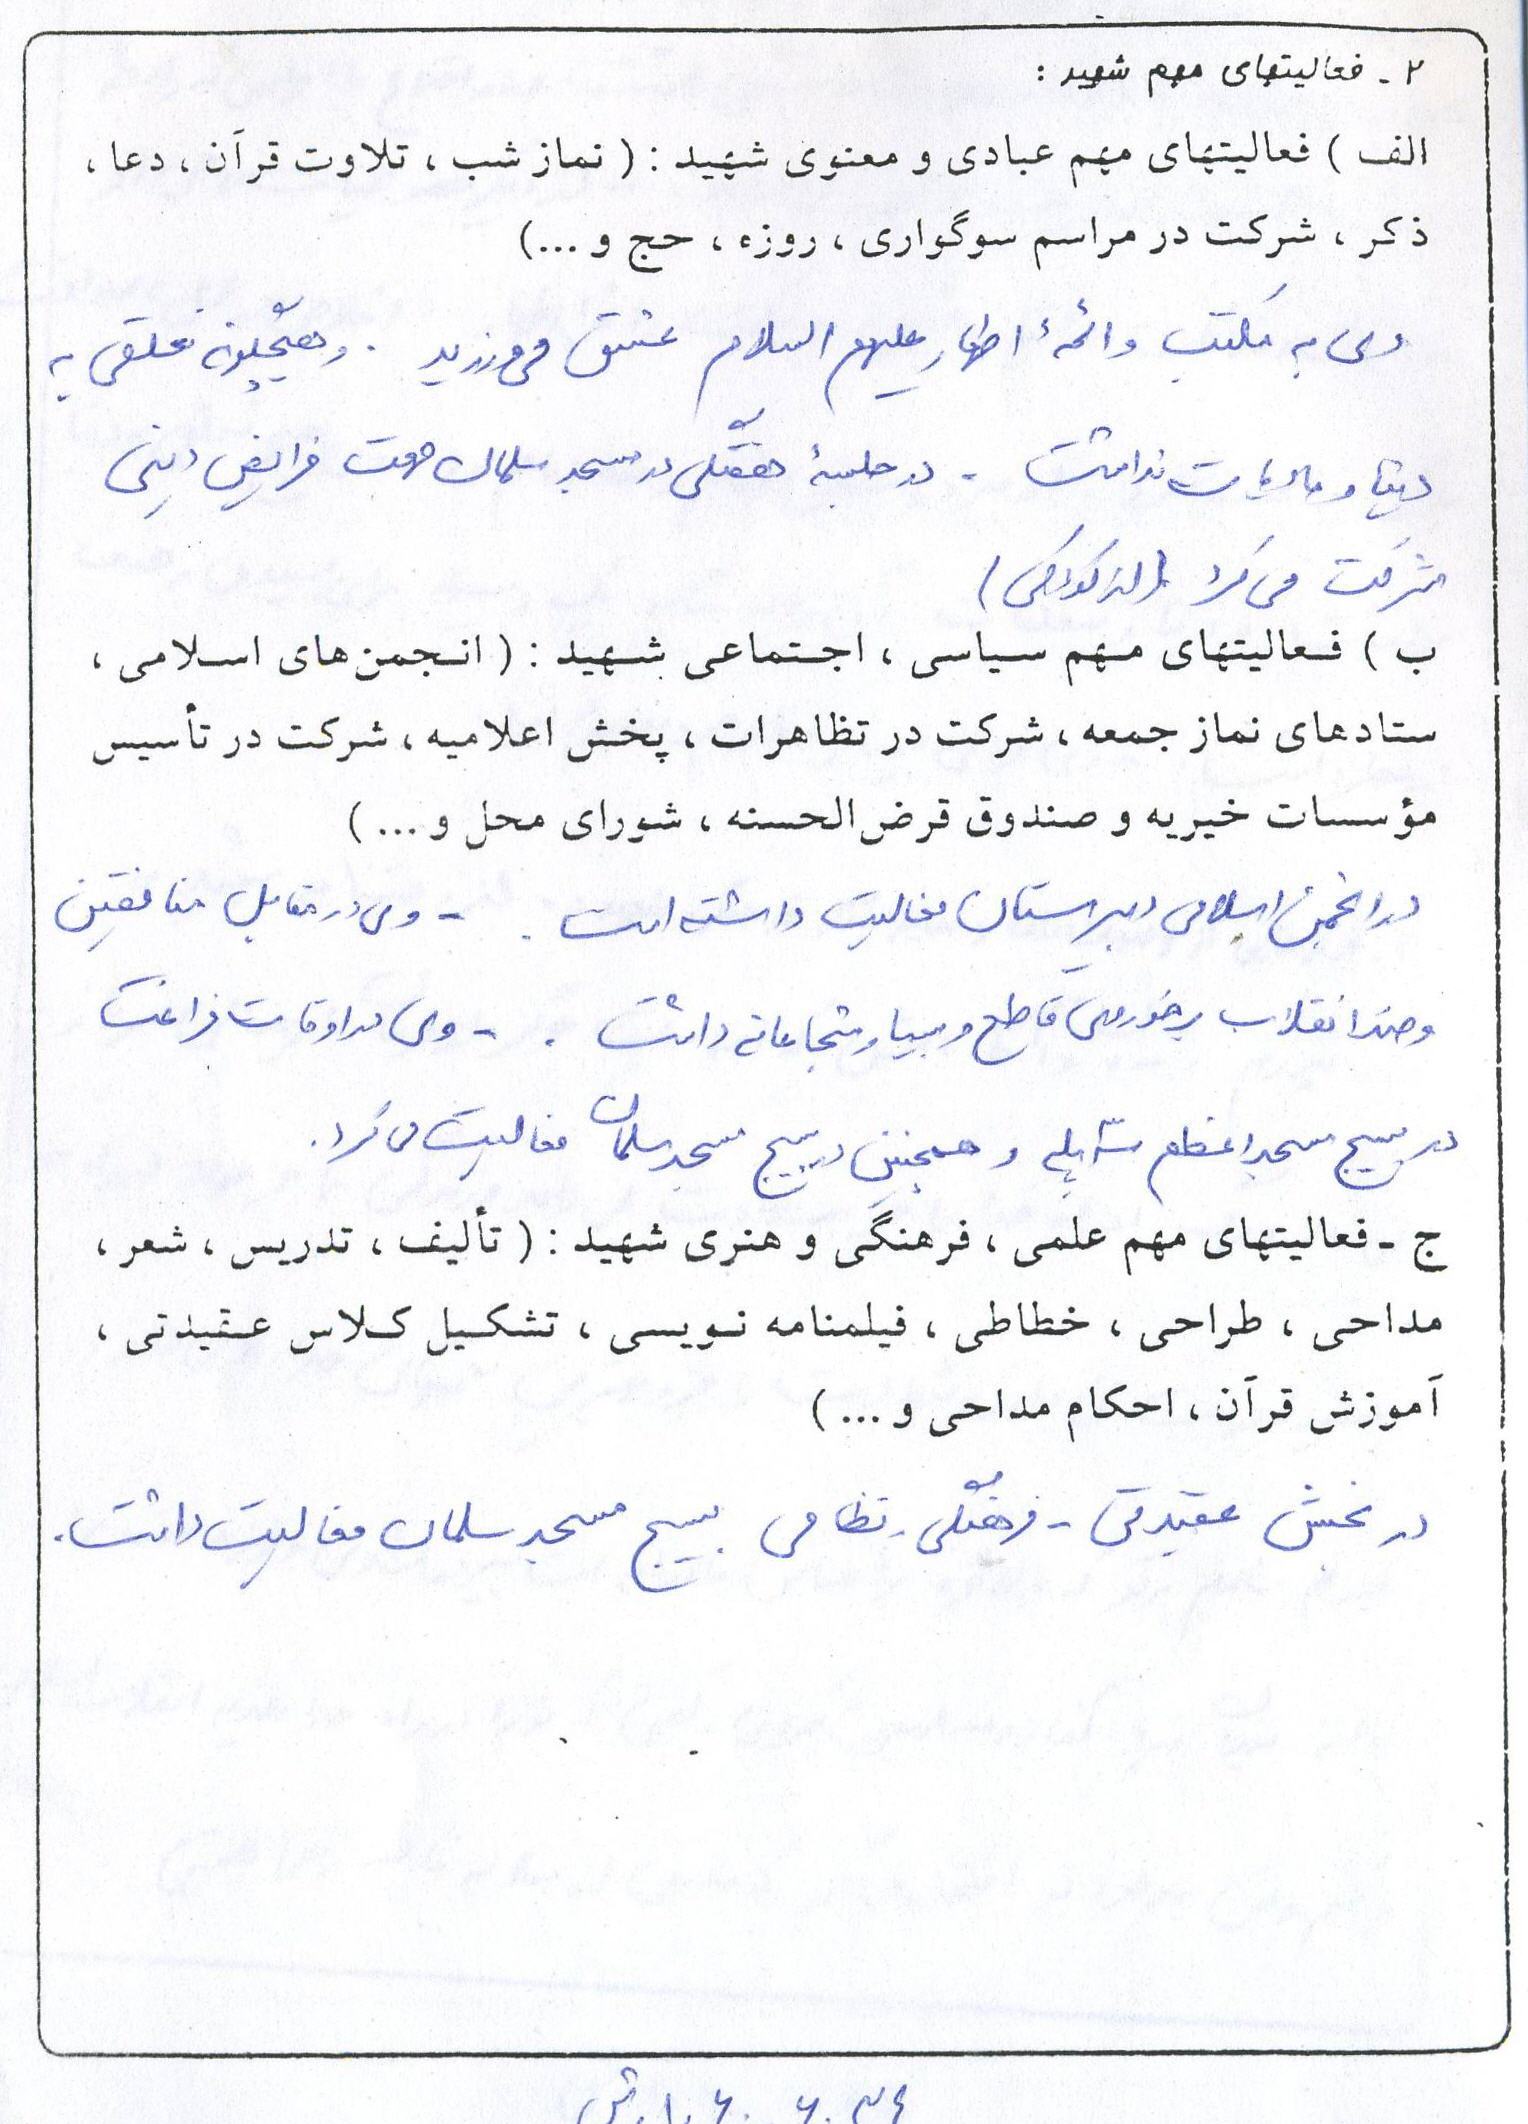 ۲ - فعالیتهای مهم شهید :
الف ) فعالیتهای مهم عبادی و معنوی شهید : ( نماز شب ، تلاوت قرآن ، دعا ،
ذکر ، شرکت در مراسم سوگواری ، روزه ، حج و ...)
وی به مکتب و ائمهٔ اطهار علیهم السلام عشق می ورزید . و هیچگونه تعلقی به
دنیا و مادیات نداشت - در جلسهٔ هفتگی در مسجد سلمان جهت فرایض دینی
شرکت می کرد (از کودکی)
ب ) فعالیتهای مهم سیاسی ، اجتماعی شهید : ( انجمن های اسلامی ،
ستادهای نماز جمعه ، شرکت در تظاهرات ، پخش اعلامیه ، شرکت در تأسیس
مؤسسات خیریه و صندوق قرض الحسنه ، شورای محل و ... )
در انجمن اسلامی دبیرستان فعالیت داشته است . - وی در مقابل منافقین
و ضد انقلاب برخوردی قاطع و بسیار شجاعانه داشت . - وی در اوقات فراغت
در بسیج مسجد اعظم و همچنین در بسیج مسجد سلمان فعالیت می کرد .
ج - فعالیتهای مهم علمی ، فرهنگی و هنری شهید : ( تألیف ، تدریس ، شعر ،
مداحی ، طراحی ، خطاطی ، فیلمنامه نویسی ، تشکیل کلاس عقیدتی ،
آموزش قرآن ، احکام مداحی و ... )
در بخش عقیدتی - فرهنگی - نظامی بسیج مسجد سلمان فعالیت داشت .